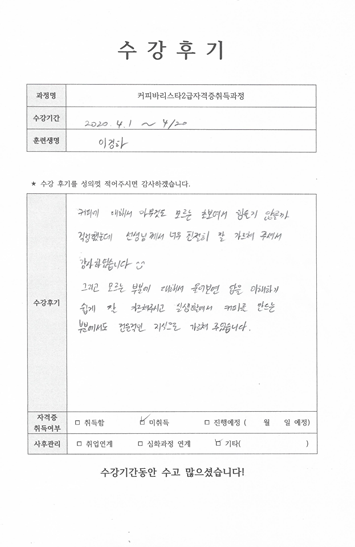 수강후기
과정명 커피바리스타2급자격증취득과정
수강기간 2020 4.1 ~ 4/20
훈련생명 이경하
★ 수강 후기를 성의껏 적어주시면 감사하겠습니다.
수강후기
커피에 대해서 아무것도 모르는 초보여서 힘들지 않을까
걱정했는데 선생님께서 너무 친절히 잘 가르쳐 주셔서
감사하였습니다
그리고 모르는 부분에 대해서 물어보면 답을 이해하기
쉽게 잘 가르쳐주시고 일상생활에서 커피를 만드는
부분에서도 전문적인 지식으로 가르쳐 주셨습니다.
자격증 취득여부 □ 취득함 ☑ 미취득 □ 진행예정 ( 월 일 예정)
사후관리 □ 취업연계 □ 심화과정 연계 ☑ 기타( )
수강기간동안 수고 많으셨습니다!